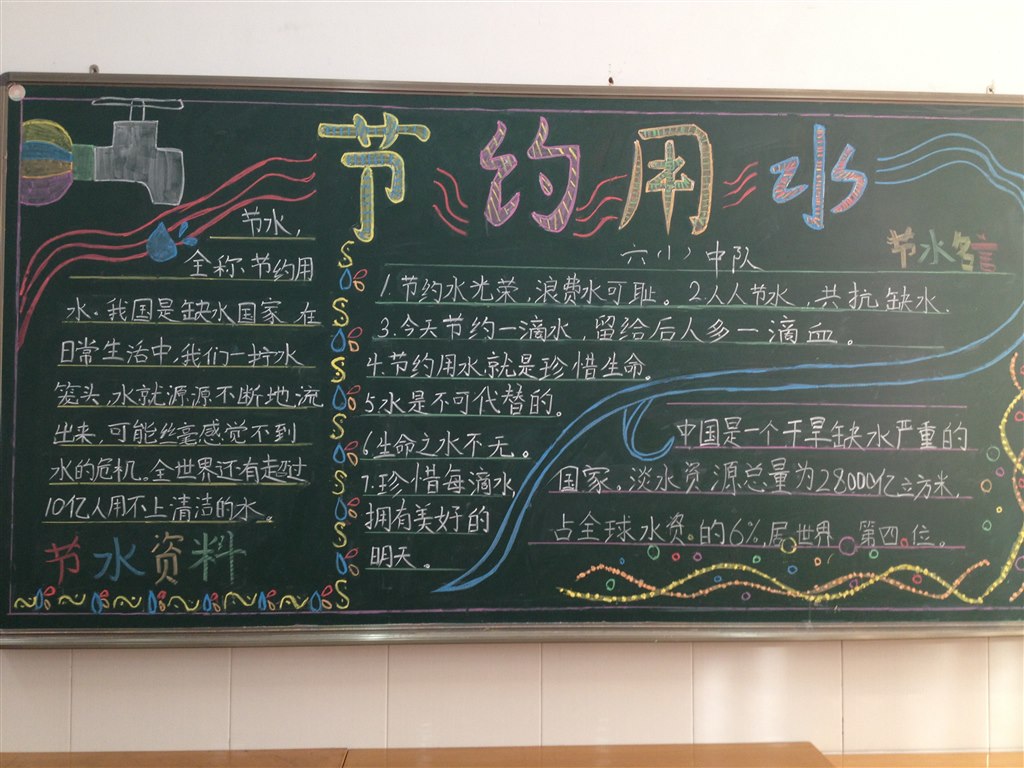 节约用水
六(一)中队
节水,
全称:节约用
水.我国是缺水国家,在
日常生活中,我们一拧水
笼头,水就源源不断地流
出来,可能丝毫感觉不到
水的危机。全世界还有超过
10亿人用不上清洁的水。
节水资料
节水名言
1节约水光荣,浪费水可耻。2人人节水,共抗缺水.
3.今天节约一滴水,留给后人多一滴血。
4.节约用水就是珍惜生命。
5水是不可代替的。
6生命之水不无。
7.珍惜每滴水,
拥有美好的
明天。
中国是一个干旱缺水严重的
国家,淡水资源总量为28000亿立方米,
占全球水资.的6%,居世界 第四位。